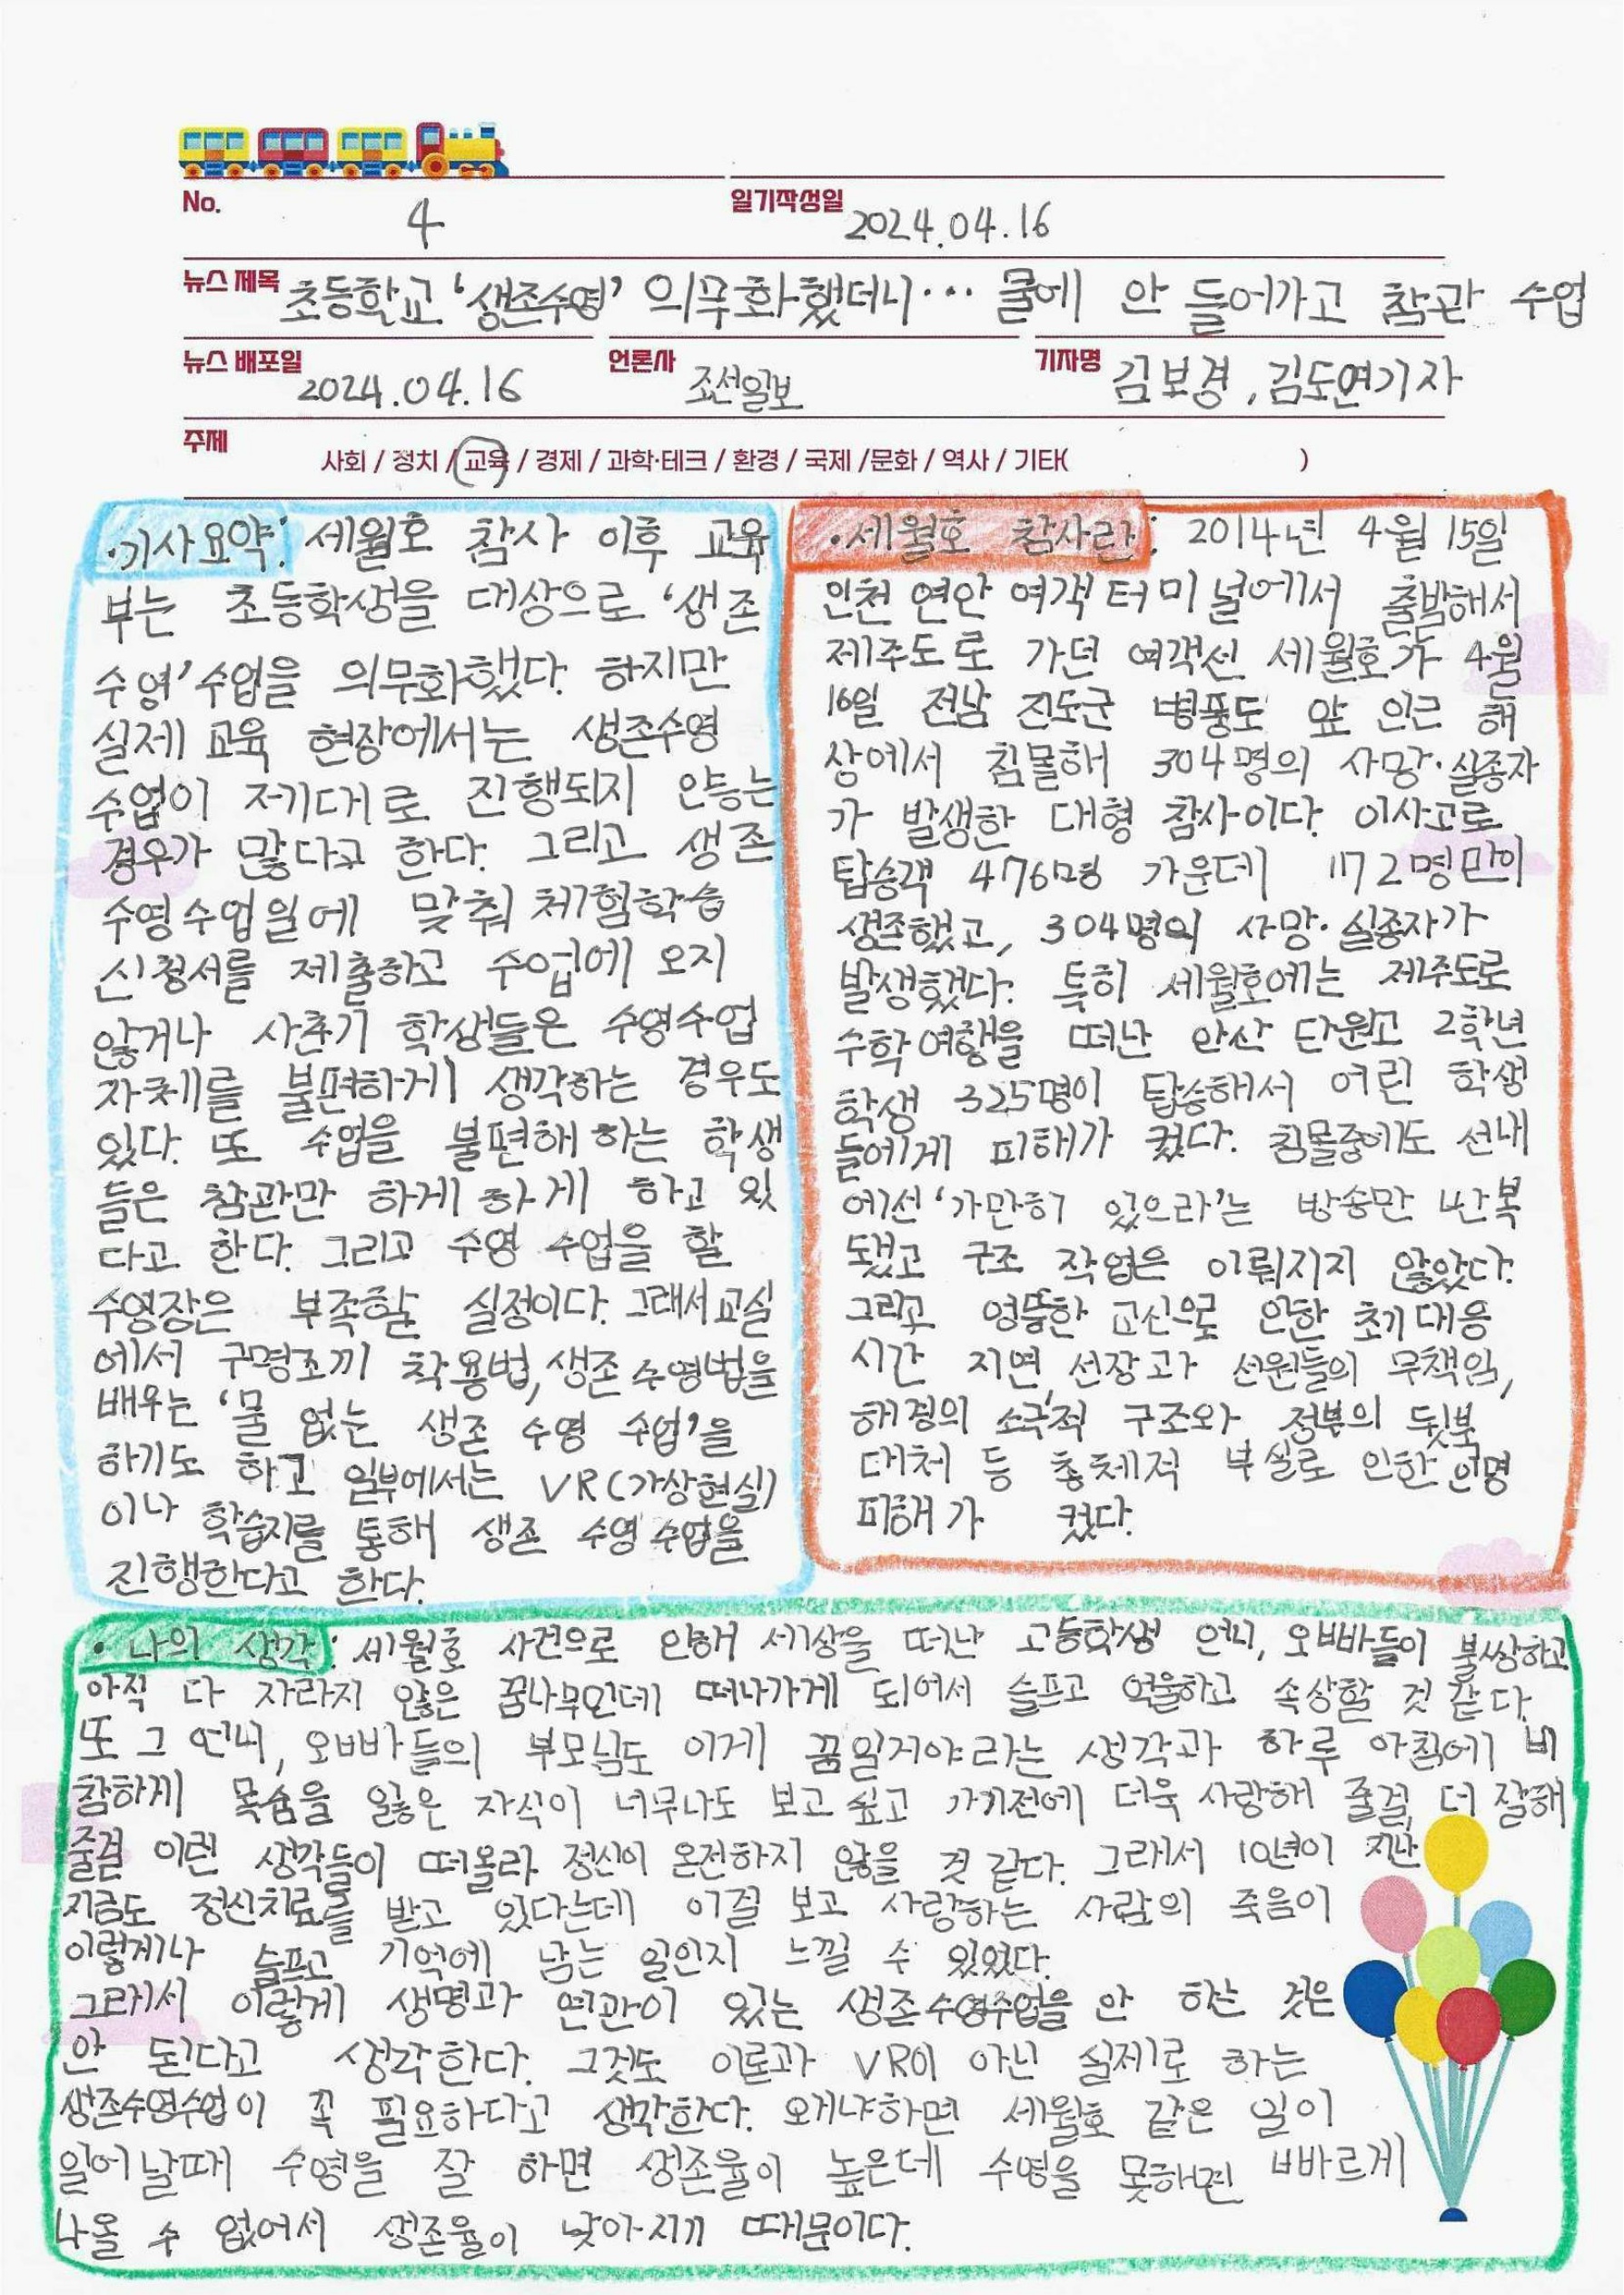 No. 4 일기작성일 2024.04.16
뉴스 제목 초등학교 ‘생존수영’ 의무화했더니… 물에 안 들어가고 참관 수업
뉴스 배포일 2024.04.16 언론사 조선일보 기자명 김보경, 김도연기자
주제 사회 / 정치 / 교육 / 경제 / 과학·테크 / 환경 / 국제 /문화 / 역사 / 기타( )
·기사요약: 세월호 참사 이후 교육
부는 초등학생을 대상으로 ‘생존
수영’수업을 의무화했다. 하지만
실제 교육 현장에서는 생존수영
수업이 제대로 진행되지 않는
경우가 많다고 한다. 그리고 생존
수영수업일에 맞춰 체험학습
신청서를 제출하고 수업에 오지
않거나 사춘기 학생들은 수영수업
자체를 불편하게 생각하는 경우도
있다. 또 수업을 불편해 하는 학생
들은 참관만 하게 하게 하고 있
다고 한다. 그리고 수영 수업을 할
수영장은 부족할 실정이다. 그래서 교실
에서 구명조끼 착용법, 생존 수영법을
배우는 ‘물 없는 생존 수영 수업’을
하기도 하고 일부에서는 VR(가상현실)
이나 학습지를 통해 생존 수영 수업을
진행한다고 한다.
·세월호 참사란: 2014년 4월 15일
인천 연안 여객 터미널에서 출발해서
제주도로 가던 여객선 세월호가 4월
16일 전남 진도군 병풍도 앞 인근 해
상에서 침몰해 304명의 사망·실종자
가 발생한 대형 참사이다. 이사고로
탑승객 476명 가운데 172명만이
생존했고, 304명의 사망·실종자가
발생했다. 특히 세월호에는 제주도로
수학여행을 떠난 안산 단원고 2학년
학생 325명이 탑승해서 어린 학생
들에게 피해가 컸다. 침몰중에도 선내
에선 ‘가만히 있으라’는 방송만 반복
됐고 구조 작업은 이뤄지지 않았다.
그리고 엉뚱한 교신으로 인한 초기 대응
시간 지연, 선장과 선원들의 무책임,
해경의 소극적 구조와 정부의 뒷북
대처 등 총체적 부실로 인한 인명
피해가 컸다.
· 나의 생각: 세월호 사건으로 인해 세상을 떠난 고등학생 언니, 오빠들이 불쌍하고
아직 다 자라지 않은 꿈나무인데 떠나가게 되어서 슬프고 억울하고 속상할 것 같다.
또 그 언니, 오빠들의 부모님도 이게 꿈일거야라는 생각과 하루 아침에 비
참하게 목숨을 잃은 자식이 너무나도 보고 싶고 가기전에 더욱 사랑해 줄걸, 더 잘해
줄걸 이런 생각들이 떠올라 정신이 온전하지 않을 것 같다. 그래서 10년이 지난
지금도 정신치료를 받고 있다는데 이걸 보고 사랑하는 사람의 죽음이
이렇게나 슬프고 기억에 남는 일인지 느낄 수 있었다.
그래서 이렇게 생명과 연관이 있는 생존수영수업을 안 하는 것은
안 된다고 생각한다. 그것도 이론과 VR이 아닌 실제로 하는
생존수영수업이 꼭 필요하다고 생각한다. 왜냐하면 세월호 같은 일이
일어날때 수영을 잘 하면 생존율이 높은데 수영을 못하면 빠르게
나올 수 없어서 생존율이 낮아지기 때문이다.